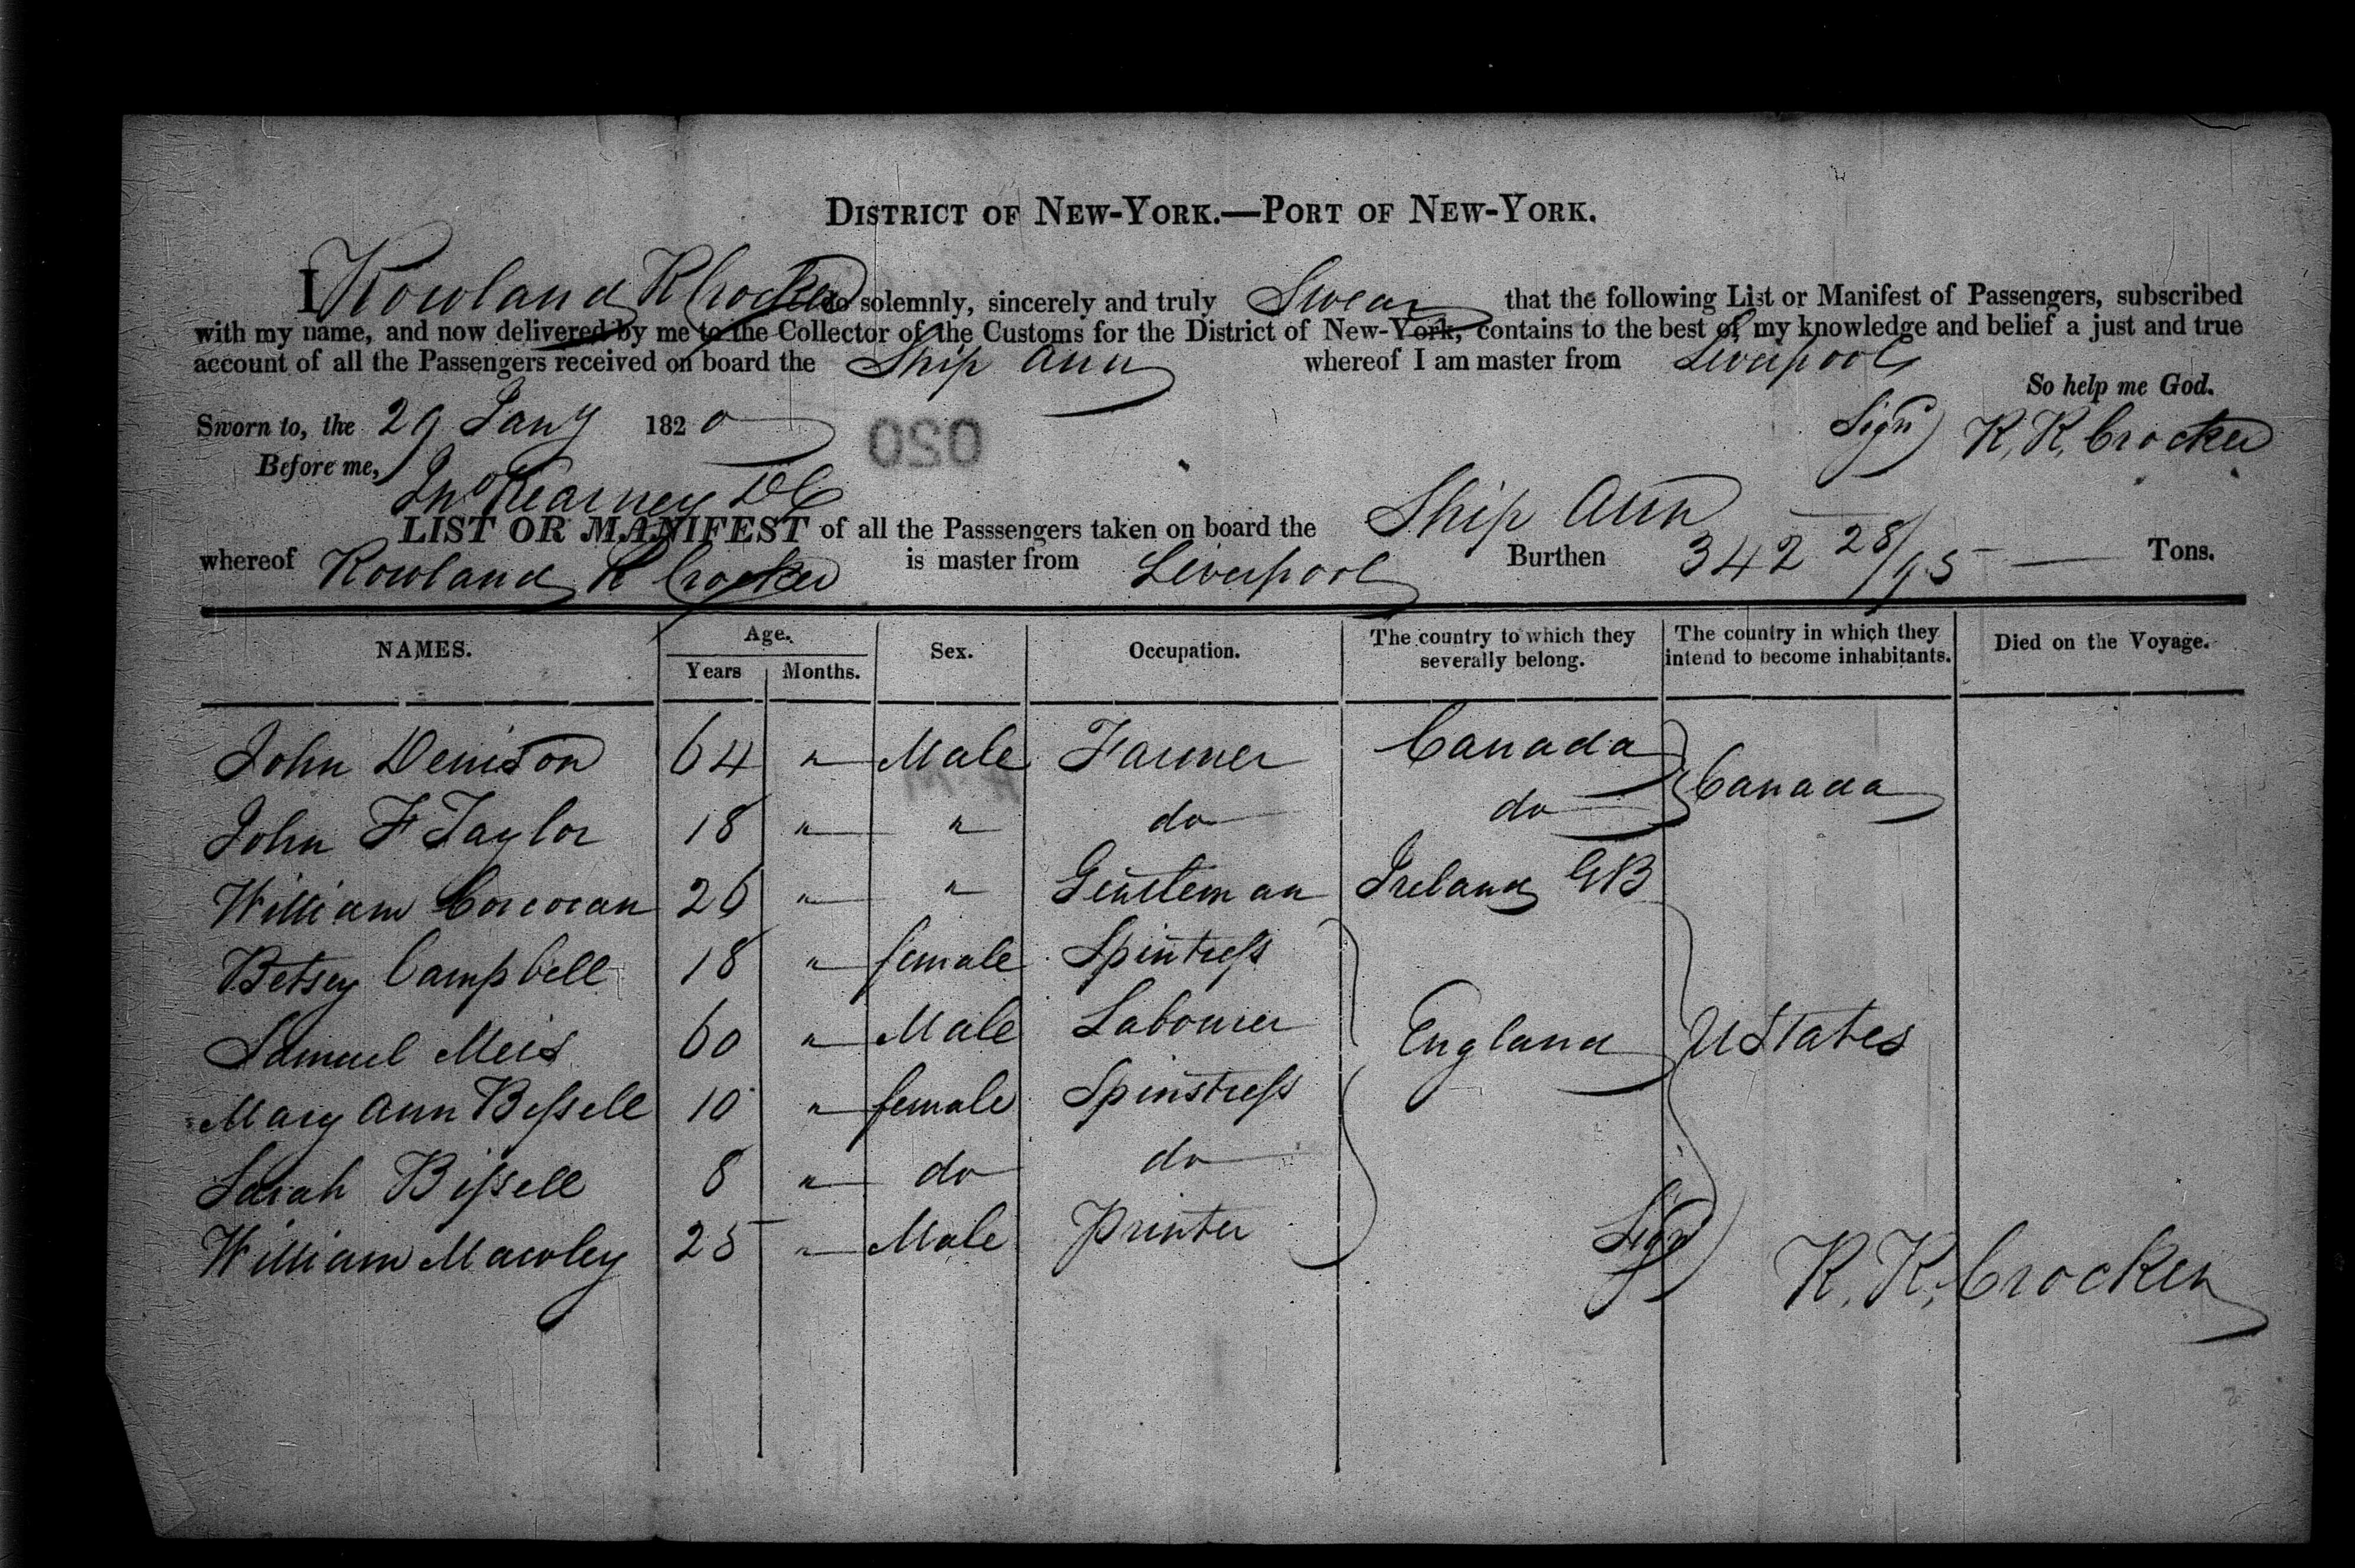 DISTRICT OF NEW-YORK.—PORT OF NEW-YORK.
I Rowland R Crocker do solemnly, sincerely and truly Swear that the following List or Manifest of Passengers, subscribed
with my name, and now delivered by me to the Collector of the Customs for the District of New-York, contains to the best of my knowledge and belief a just and true
account of all the Passengers received on board the Ship Ann whereof I am master from Liverpool
So help me God.
Sworn to, the 29 Jany 1820 Sign R. R. Crocker
Before me,
Jno Kearney DC
020
LIST OR MANIFEST of all the Passsengers taken on board the Ship Ann
whereof Rowland R Crocker is master from Liverpool Burthen 342 28/95 Tons.
NAMES. Age. Years Months. Sex. Occupation. The country to which they severally belong. The country in which they intend to become inhabitants. Died on the Voyage.
John Denison 64 " Male Farmer Canada Canada
John F Taylor 18 " " do do
William Corcoran 26 " " Gentleman Ireland GB
Betsey Campbell 18 " female Spintress
Samuel 60 " Male Labourer England U States
Mary Ann Bissell 10 " female Spinstress
Sarah Bissell 8 " do do
William Mawley 25 " Male Printer
Sign R. R. Crocker